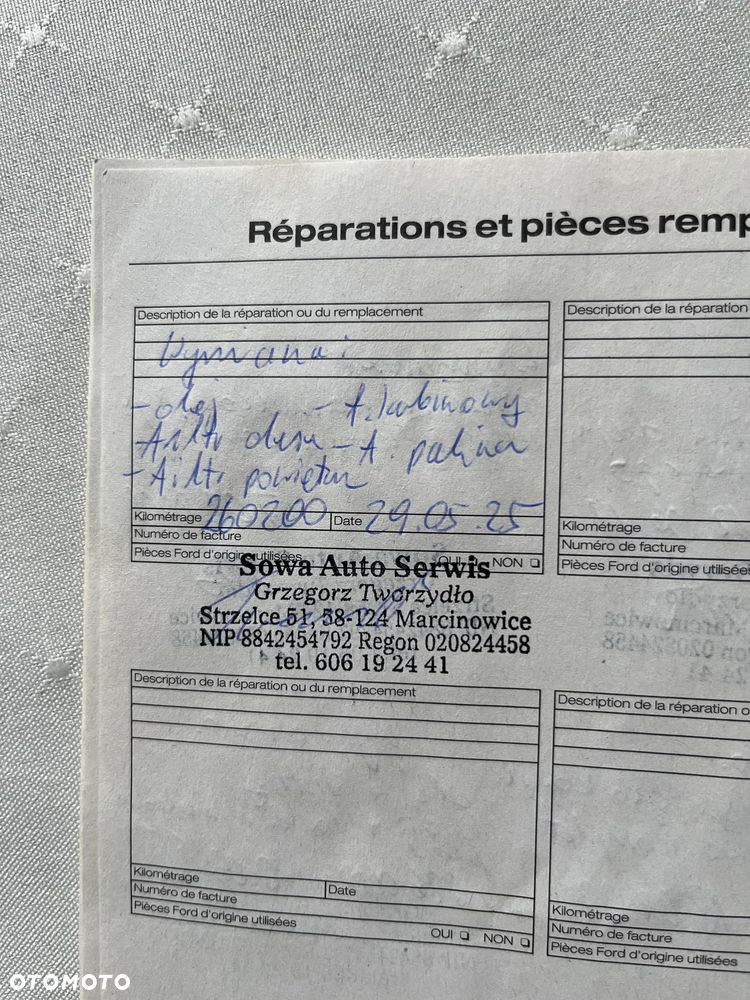 Réparations et pièces remp
Description de la réparation ou du remplacement
Description de la réparation
Wymiana:
- olej - f. kabinowy
- filtr oleju - f. paliwa
- filtr powietrza
Kilométrage 260200 Date 29.05.25
Numéro de facture
Pièces Ford d'origine utilisées OUI NON
Kilométrage
Numéro de facture
Pièces Ford d'origine utilisées
Sowa Auto Serwis
Grzegorz Tworzydło
Strzelce 51, 58-124 Marcinowice
NIP 8842454792 Regon 020824458
tel. 606 19 24 41
Description de la réparation ou du remplacement
Description de la réparation o
Kilométrage Date
Numéro de facture
Pièces Ford d'origine utilisées OUI NON
Kilométrage
Numéro de facture
Pièces Ford d'origine utilisées
OTOMOTO